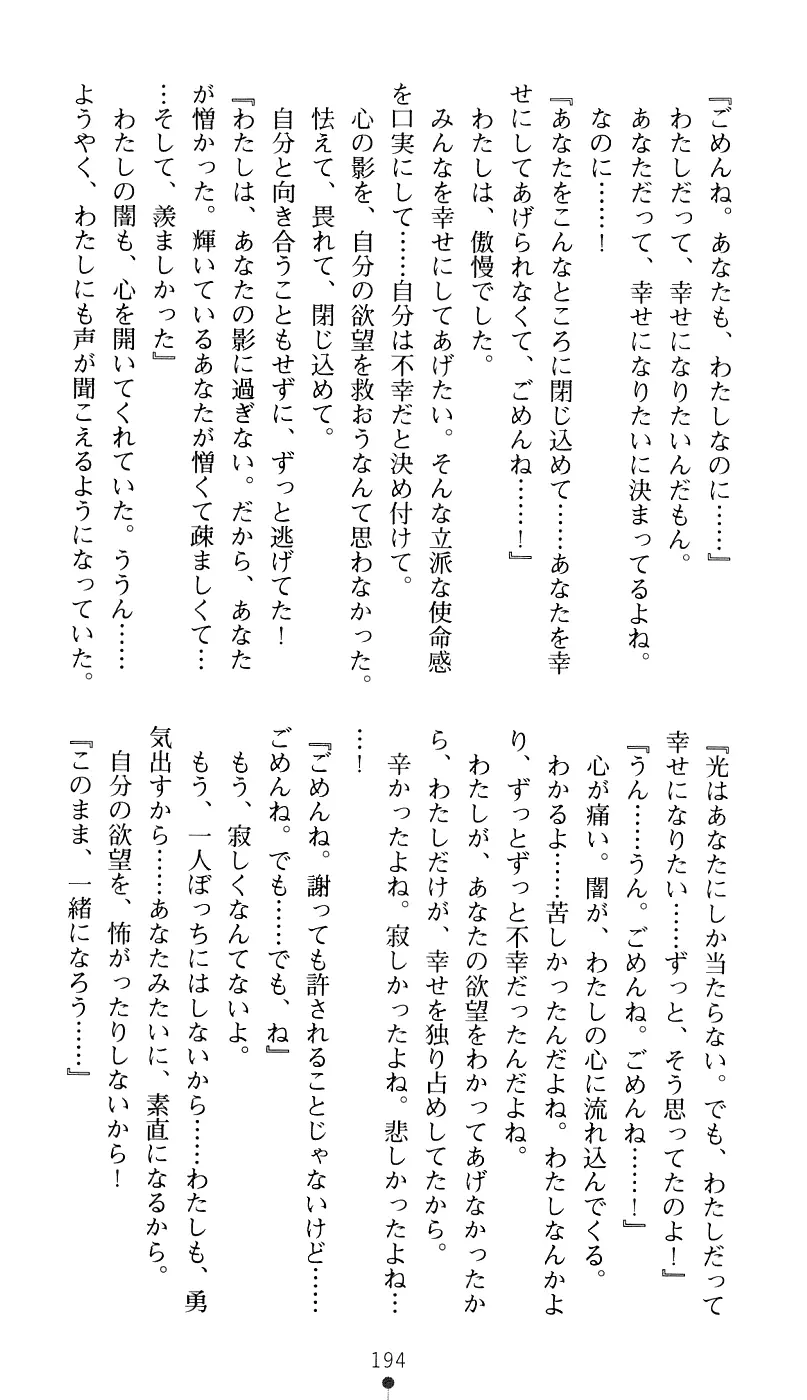 『ごめんね。あなたも、わたしなのに……』
わたしだって、幸せになりたいんだもん。
あなただって、幸せになりたいに決まってるよね。
なのに……！
『あなたをこんなところに閉じ込めて……あなたを幸
せにしてあげられなくて、ごめんね……！』
わたしは、傲慢でした。
みんなを幸せにしてあげたい。そんな立派な使命感
を口実にして……自分は不幸だと決め付けて。
心の影を、自分の欲望を救おうなんて思わなかった。
怯えて、畏れて、閉じ込めて。
自分と向き合うこともせずに、ずっと逃げてた！
『わたしは、あなたの影に過ぎない。だから、あなた
が憎かった。輝いているあなたが憎くて疎ましくて…
…そして、羨ましかった』
わたしの闇も、心を開いてくれていた。ううん……
ようやく、わたしにも声が聞こえるようになっていた。
『光はあなたにしか当たらない。でも、わたしだって
幸せになりたい……ずっと、そう思ってたのよ！』
『うん……うん。ごめんね。ごめんね……！』
心が痛い。闇が、わたしの心に流れ込んでくる。
わかるよ……苦しかったんだよね。わたしなんかよ
り、ずっとずっと不幸だったんだよね。
わたしが、あなたの欲望をわかってあげなかったか
ら、わたしだけが、幸せを独り占めしてたから。
辛かったよね。寂しかったよね。悲しかったよね…
…！
『ごめんね。謝っても許されることじゃないけど……
ごめんね。でも……でも、ね』
もう、寂しくなんてないよ。
もう、一人ぼっちにはしないから……わたしも、勇
気出すから……あなたみたいに、素直になるから。
自分の欲望を、怖がったりしないから！
『このまま、一緒になろう……』
194